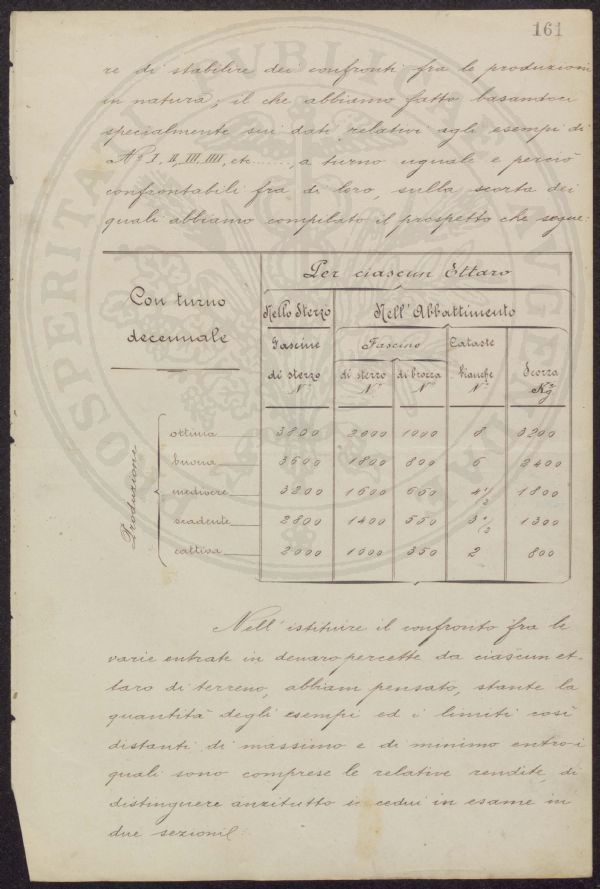 161
re di stabilire dei confronti fra le produzioni
in natura; il che abbiamo fatto basandoci
specialmente sui dati relativi agli esempi di
Nº I, II, III, IIII, etc ........, a turno uguale e perciò
confrontabili fra di loro, sulla scorta dei
quali abbiamo compilato il prospetto che segue:
Con turno decennale
Per ciascun Ettaro
Nello Sterzo Nell'Abbattimento
Fascine di sterzo Nº
Fascine di sterzo Nº di brocca Nº
Cataste bianche Nº
Scorza Kg
Produzione
ottima 3800 2000 1000 8 3200
buona 3500 1800 800 6 2400
mediocre 3200 1600 600 4 1/2 1800
scadente 2800 1400 550 3 1/2 1300
cattiva 2000 1000 350 2 800
Nell'istituire il confronto fra le
varie entrate in denaro percette da ciascun et-
taro di terreno, abbiam pensato, stante la
quantità degli esempi ed i limiti così
distanti di massimo e di minimo entro i
quali sono comprese le relative rendite, di
distinguere anzitutto i cedui in esame in
due sezioni
PROSPERITATI PUBLICAE AUGENDAE